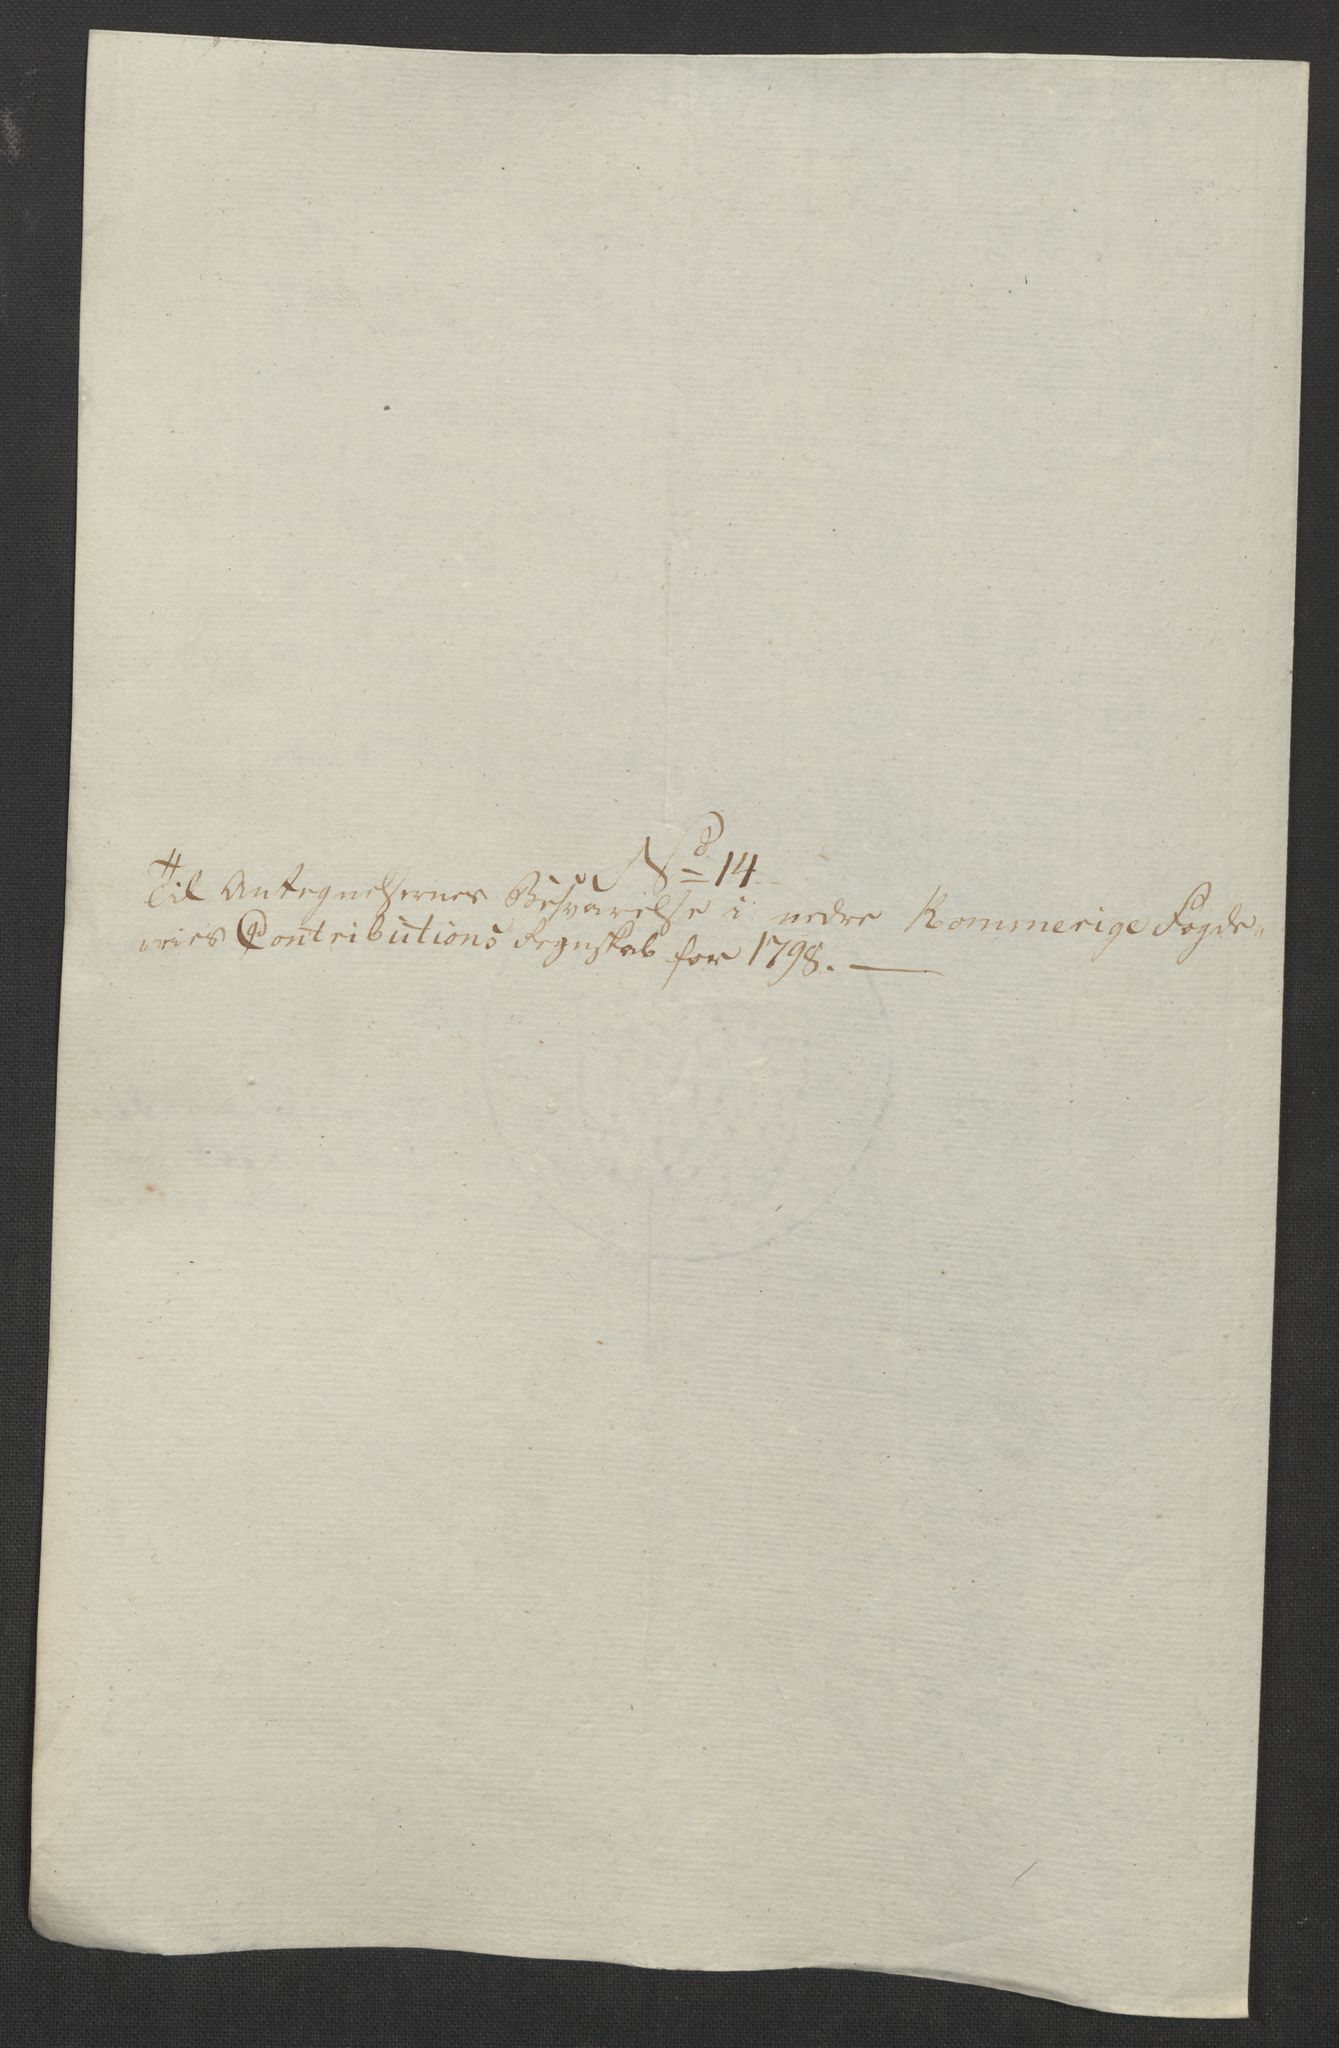 No 14
Til Antegnelsernes Besvarelse i nedre Rommerige Fogde„
ries Contributions Regnskab for 1798. —